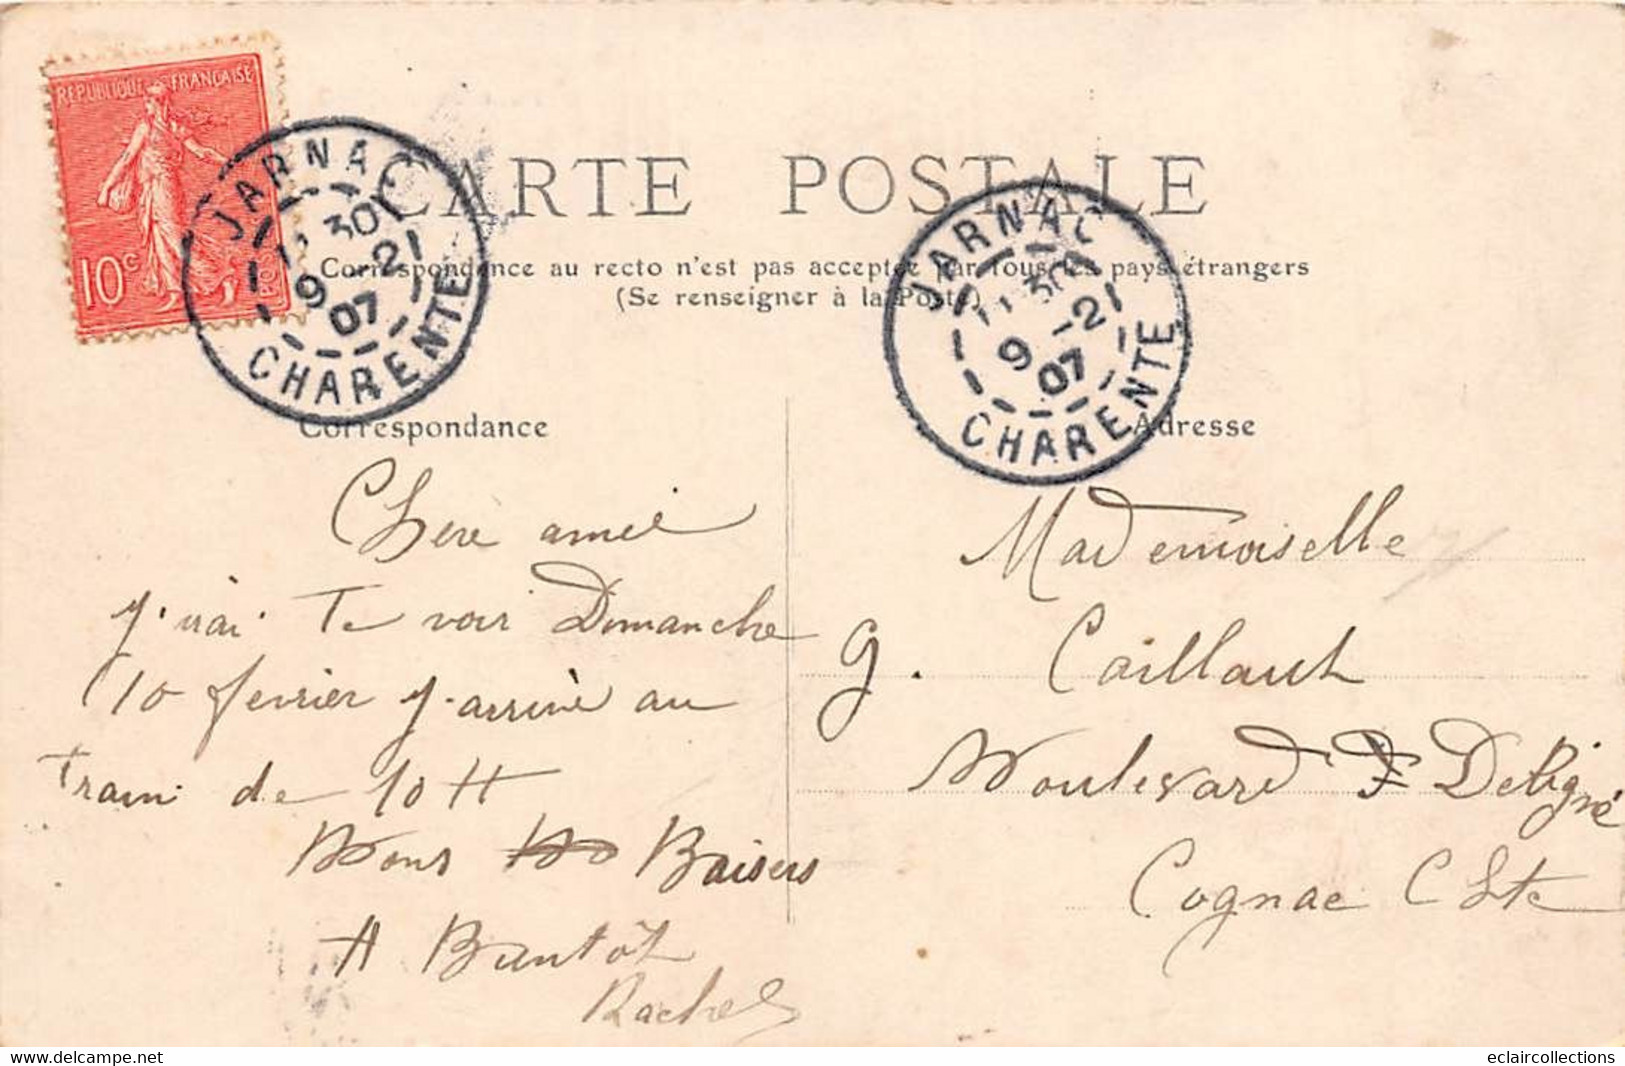 REPUBLIQUE FRANÇAISE
10c
JARNAC
30
9 -2
07
CHARENTE
JARNAC
30
9 -2
07
CHARENTE
CARTE POSTALE
Correspondance au recto n'est pas acceptée par tous les pays étrangers
(Se renseigner à la Poste)
Correspondance
Adresse
Chere amie
J'irai Te voir Dimanche
10 fevrier J'arrive au
Train de 10 H
Bons Baisers
A Bientôt
Rachel
Mademoiselle
G. Caillaut
Boulevard Deligné
Cognac Chte
delcampe.net
eclaircollections